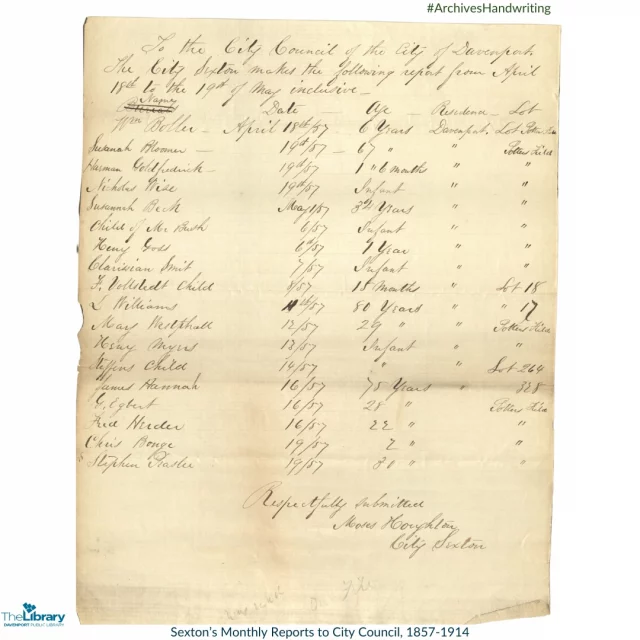 #ArchivesHandwriting
To the City Council of the City of Davenport
The City Sexton makes the following report from April
18th to the 19th of May inclusive –
Names Date – Age – Residence – Lot
Wm Boller – April 18th/57 6 Years Davenport Lot Potters Field
Susanah Bloomer – 19th/57 – 67 " " Potters Field
Harman Goldfredrick – 19th/57 1 " 6 months " "
Nicholas Wise 19th/57 Infant " "
Susannah Beck May 1/57 32 Years " "
Child of Mr Bush 6/57 Infant " "
Henry Gods 6th/57 1 Year " "
Clarisian Smit 7/57 Infant " "
F. Vollstedt Child 8/57 15 Months " Lot 18
L Williams 11th/57 80 Years " " 17
Mary Westphall 12/57 29 " " Potters Field
Henry Myers 13/57 Infant " "
Steffens Child 14/57 " " Lot 264
James Hannah 16/57 75 Years " 328
G. Egbert 16/57 28 " Potters Field
Fred Herder 16/57 22 " "
Chris Bonge 19/57 2 " "
Stephen 19/57 30 " "
Respectfully submitted
Moses Houghton
City Sexton
The Library
DAVENPORT PUBLIC LIBRARY
Sexton's Monthly Reports to City Council, 1857-1914